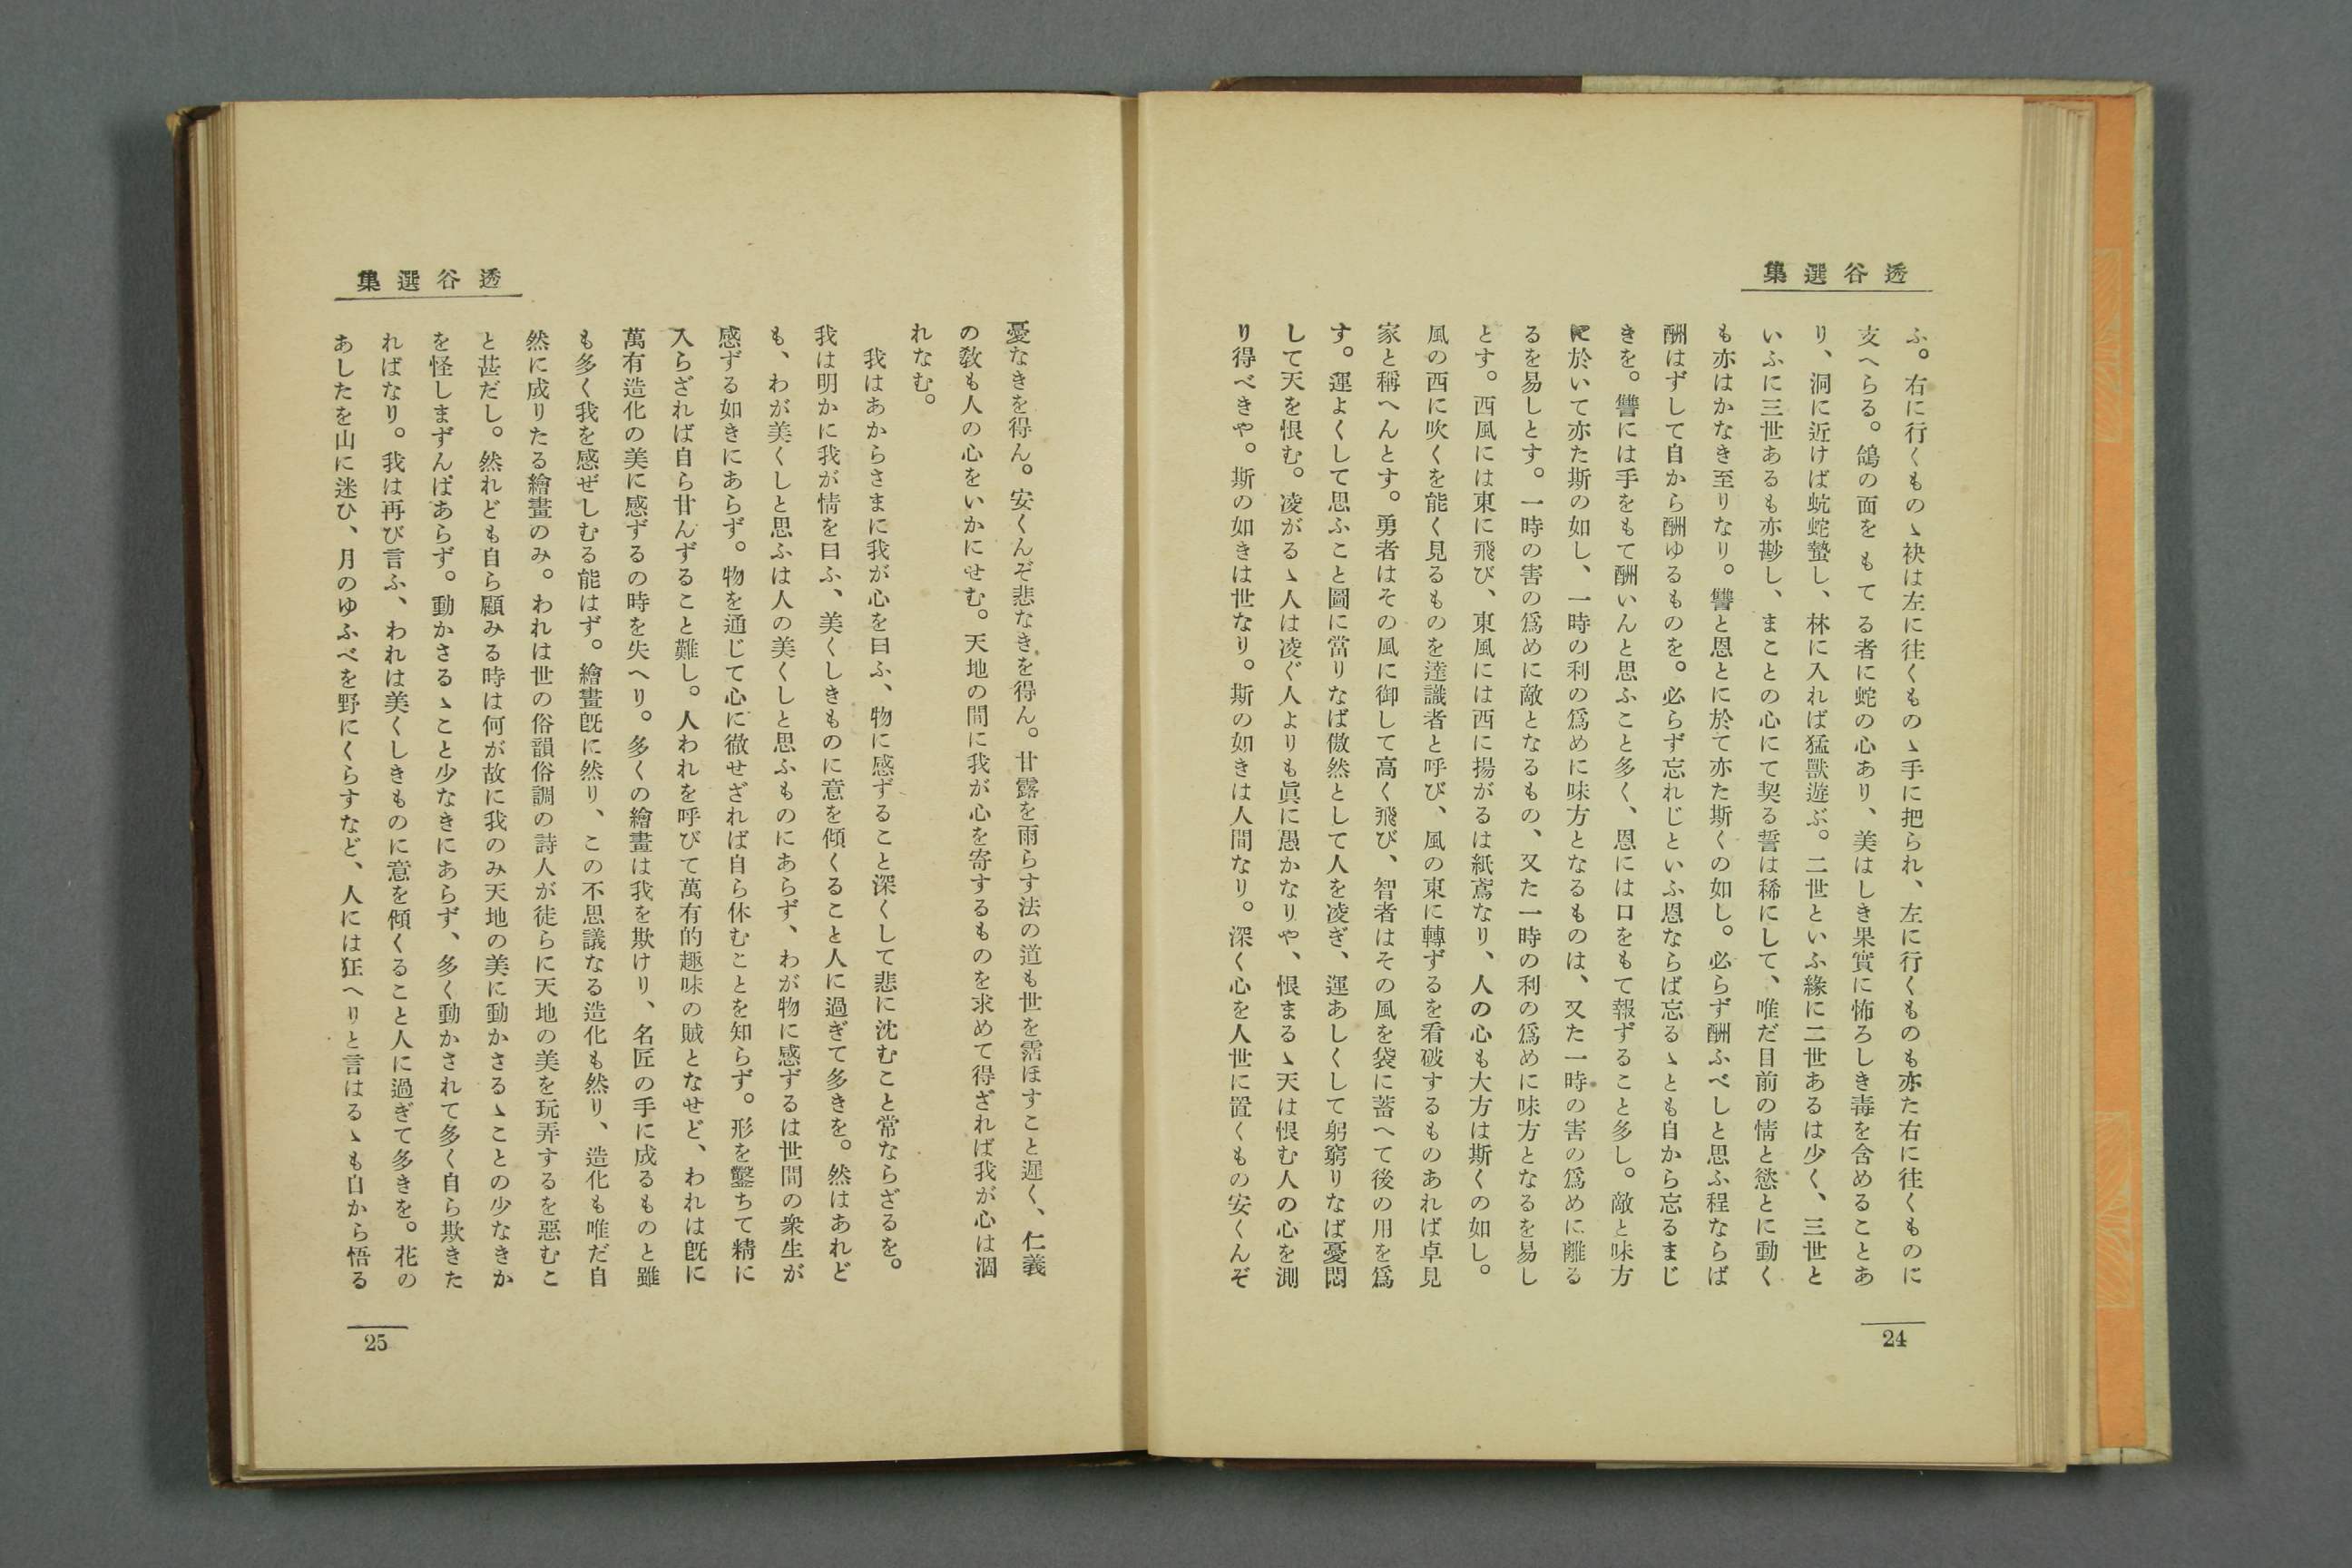 透谷選集
ふ。右に行くものゝ袂は左に往くものゝ手に把られ、左に行くものも亦た右に往くものに
支へらる。鴿の面をもてる者に蛇の心あり、美はしき果實に怖ろしき毒を含めることあ
り、洞に近けば蚖蛇蟄し、林に入れば猛獸遊ぶ。二世といふ緣に二世あるは少く、三世と
いふに三世あるも亦尠し、まことの心にて契る誓は稀にして、唯だ目前の情と慾とに動く
も亦はかなき至りなり。讐と恩とに於て亦た斯くの如し。必らず酬ふべしと思ふ程ならば
酬はずして自から酬ゆるものを。必らず忘れじといふ恩ならば忘るゝとも自から忘るまじ
きを。讐には手をもて酬いんと思ふこと多く、恩には口をもて報ずること多し。敵と味方
に於いて亦た斯の如し、一時の利の爲めに味方となるものは、又た一時の害の爲めに離る
るを易しとす。一時の害の爲めに敵となるもの、又た一時の利の爲めに味方となるを易し
とす。西風には東に飛び、東風には西に揚がるは紙鳶なり、人の心も大方は斯くの如し。
風の西に吹くを能く見るものを達識者と呼び、風の東に轉ずるを看破するものあれば卓見
家と稱へんとす。勇者はその風に御して高く飛び、智者はその風を袋に蓄へて後の用を爲
す。運よくして思ふこと圖に當りなば傲然として人を凌ぎ、運あしくして躬窮りなば憂悶
して天を恨む。凌がるゝ人は凌ぐ人よりも眞に愚かなりや、恨まるゝ天は恨む人の心を測
り得べきや。斯の如きは世なり。斯の如きは人間なり。深く心を人世に置くもの安くんぞ
24
透谷選集
憂なきを得ん。安くんぞ悲なきを得ん。甘露を雨らす法の道も世を霑ほすこと遲く、仁義
の敎も人の心をいかにせむ。天地の間に我が心を寄するものを求めて得ざれば我が心は涸
れなむ。
我はあからさまに我が心を曰ふ、物に感ずること深くして悲に沈むこと常ならざるを。
我は明かに我が情を曰ふ、美くしきものに意を傾くること人に過ぎて多きを。然はあれど
も、わが美くしと思ふは人の美くしと思ふものにあらず、わが物に感ずるは世間の衆生が
感ずる如きにあらず。物を通じて心に徹せざれば自ら休むことを知らず。形を鑿ちて精に
入らざれば自ら甘んずること難し。人われを呼びて萬有的趣味の賊となせど、われは旣に
萬有造化の美に感ずるの時を失へり。多くの繪畫は我を欺けり、名匠の手に成るものと雖
も多く我を感ぜしむる能はず。繪畫旣に然り、この不思議なる造化も然り、造化も唯だ自
然に成りたる繪畫のみ。われは世の俗韻俗調の詩人が徒らに天地の美を玩弄するを惡むこ
と甚だし。然れども自ら顧みる時は何が故に我のみ天地の美に動かさるゝことの少なきか
を怪しまずんばあらず。動かさるゝこと少なきにあらず、多く動かされて多く自ら欺きた
ればなり。我は再び言ふ、われは美くしきものに意を傾くること人に過ぎて多きを。花の
あしたを山に迷ひ、月のゆふべを野にくらすなど、人には狂へりと言はるゝも自から悟る
25